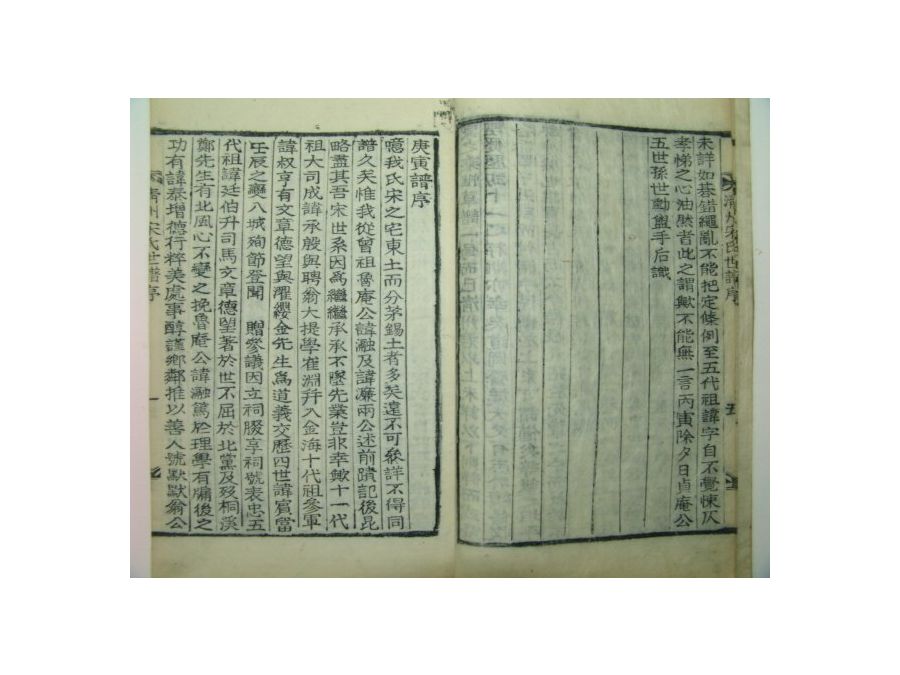 未詳如棊錯繩亂不能把定條例至五代祖諱字自不覺悚仄
孝悌之心油然者此之謂歟不能無一言丙寅除夕日貞庵公
五世孫世勳盥手后識
清州宋氏世譜序
五
庚寅譜序
噫我氏宋之宅東土而分茅錫土者多矣遠不可參詳不得同
譜久矣惟我從曾祖魯庵公諱瀜及諱濂兩公述前蹟記後昆
略盡其吾宋世系因爲繼繼承承不墜先業豈非幸歟十一代
祖大司成諱承殷與聘翁大提學崔淵幷入金海十代祖參軍
諱叔亨有文章德望與濯纓金先生爲道義交歷四世諱賓當
壬辰之難八城殉節登聞 贈參議因立祠腏享祠號表忠五
代祖諱廷伯升司馬文章德望著於世不屈於北黨及歿桐溪
鄭先生有北風心不變之挽魯庵公諱瀜篤於理學有牖後之
功有諱泰增德行粹美處事醇謹鄉鄰推以善人號默默翁公
清州宋氏世譜序
一